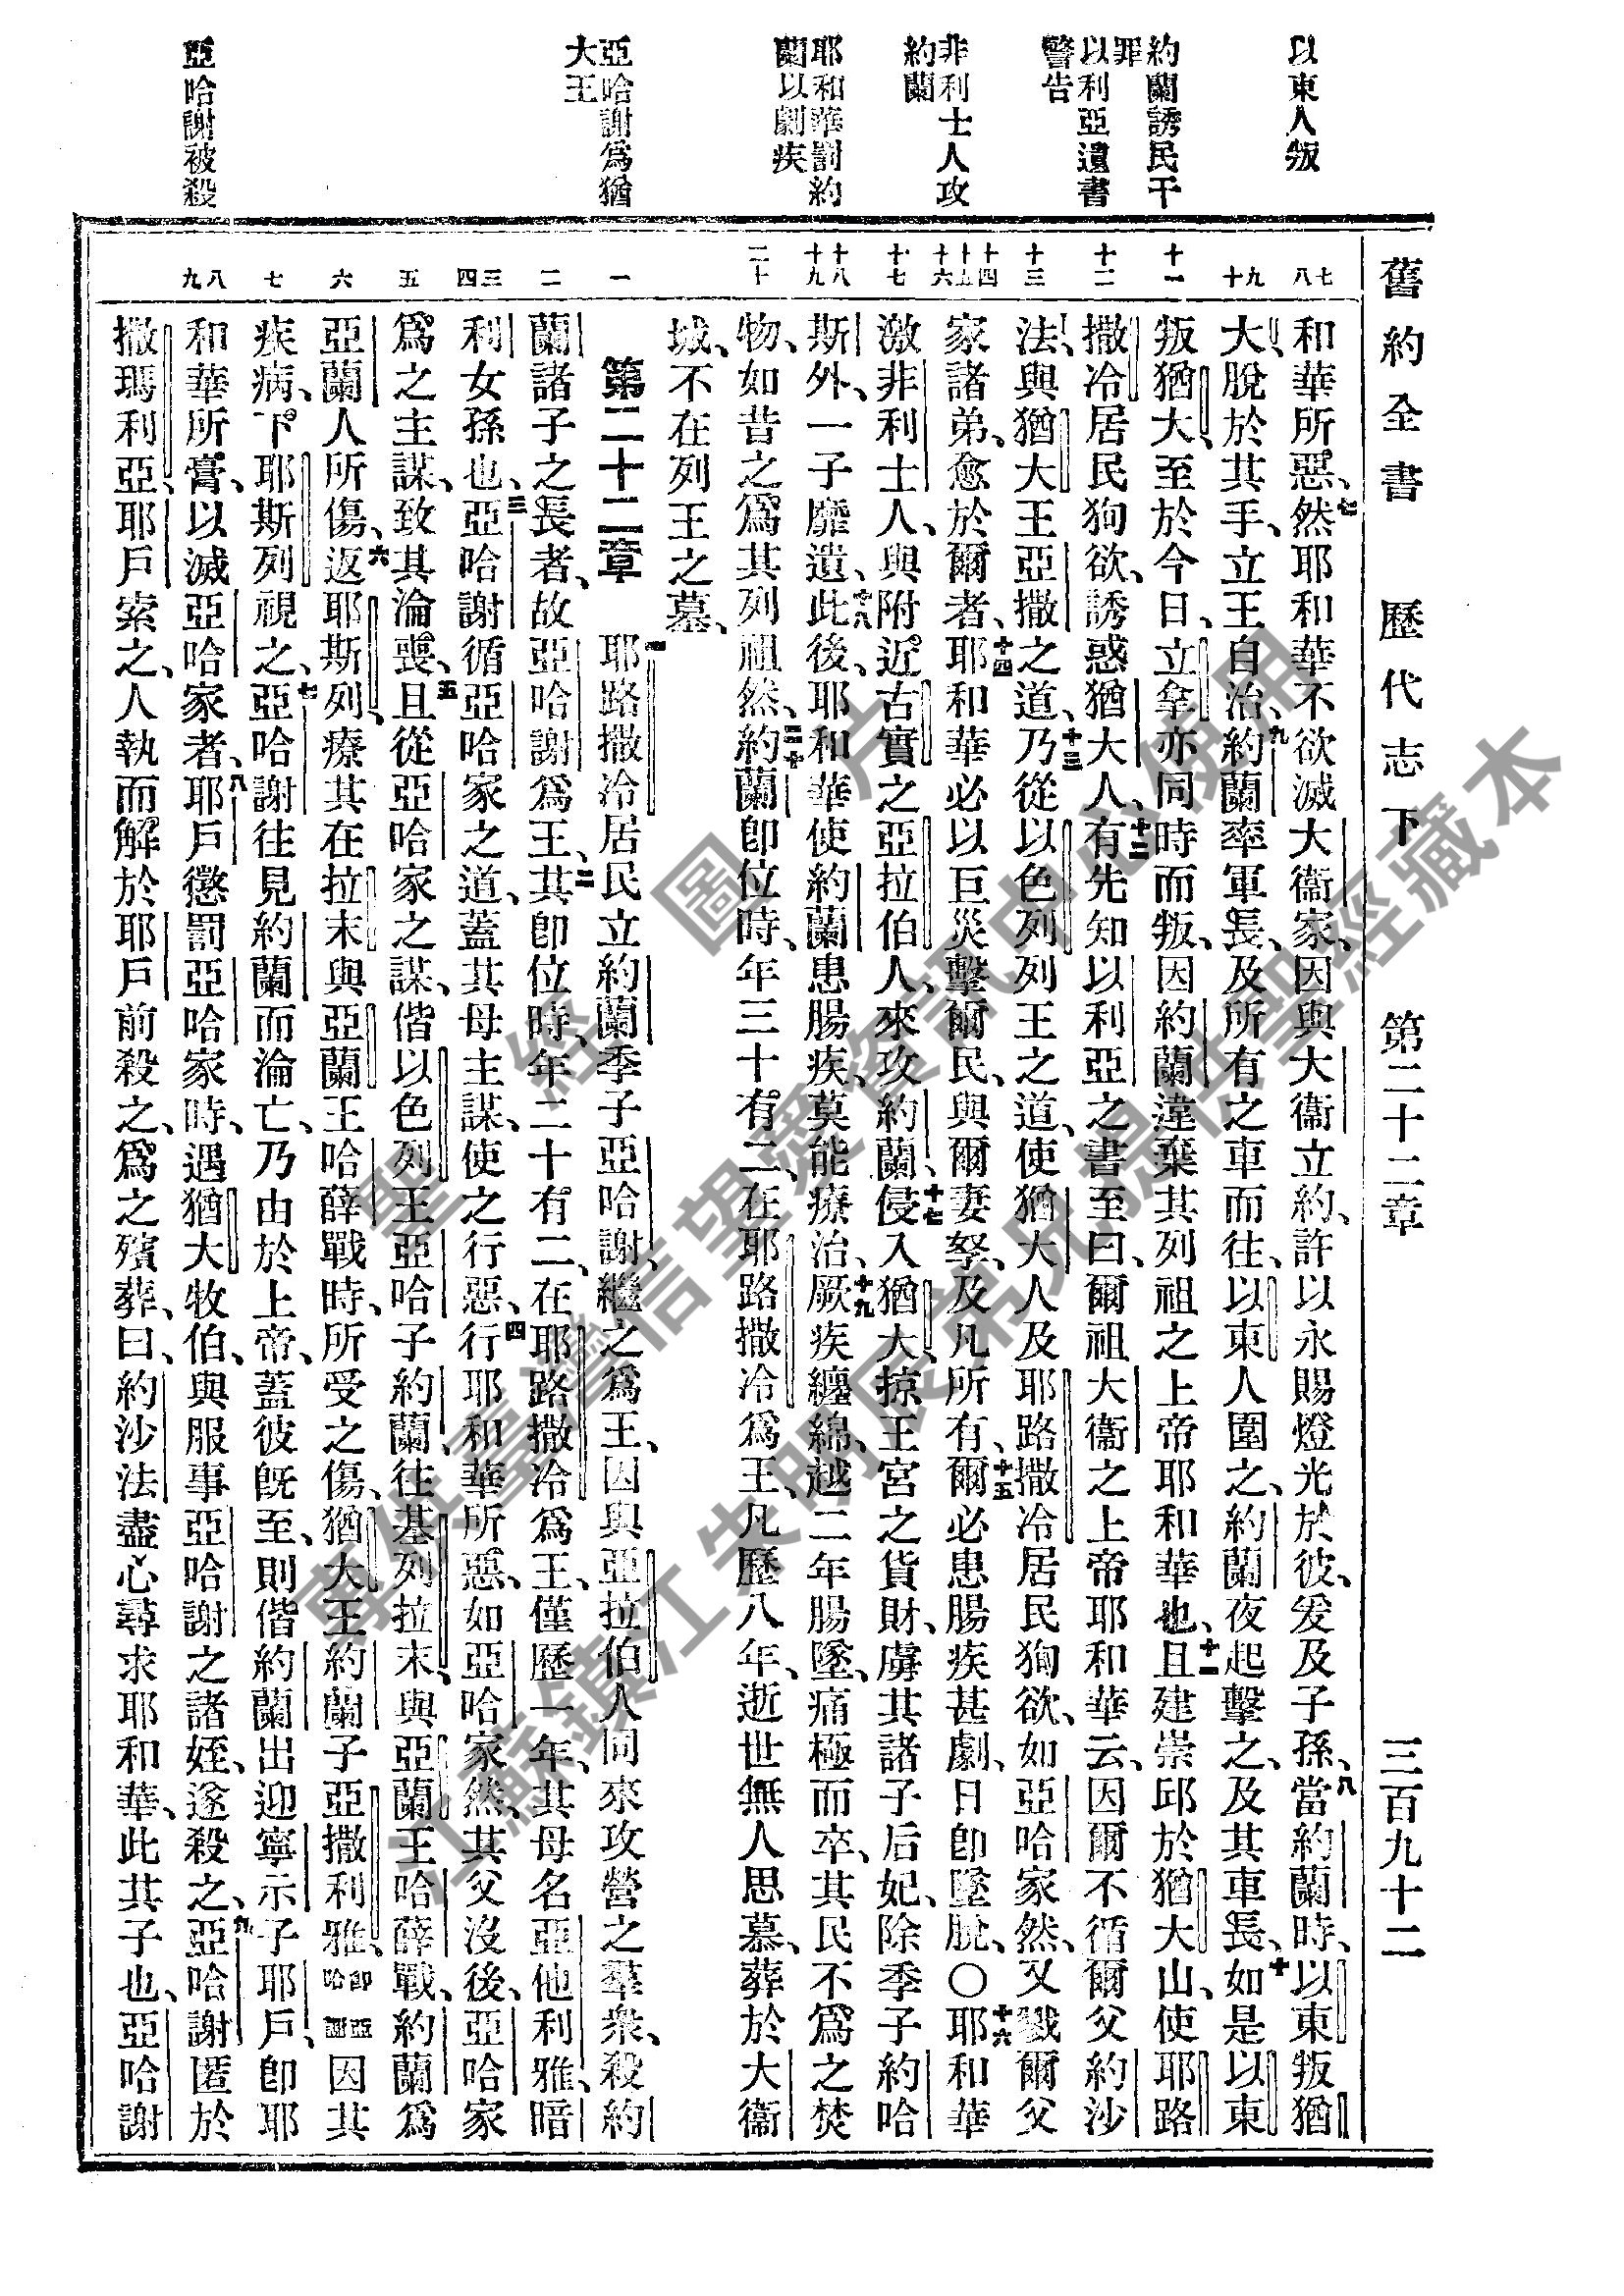 舊約全書 歷代志下 第二十二章 三百九十二
以東人叛
約蘭誘民干
罪
以利亞遺書
警告
非利士人攻
約蘭
耶和華罰約
蘭以劇疾
亞哈謝爲猶
大王
亞哈謝被殺
七 八
九 十
十一
十二
十三
十四 十五 十六
十七
十八 十九
二十
一
二
三 四
五
六
七
八 九
和華所惡、七然耶和華不欲滅大衞家、因與大衞立約、許以永賜燈光於彼、爰及子孫、八當約蘭時、以東叛猶
大、脫於其手、立王自治、九約蘭率軍長、及所有之車而往、以東人圍之、約蘭夜起擊之、及其車長、十如是以東
叛猶大、至於今日、立拿亦同時而叛、因約蘭違棄其列祖之上帝耶和華也、十一且建崇邱於猶大山、使耶路
撒冷居民狥欲、誘惑猶大人、十二有先知以利亞之書至曰、爾祖大衞之上帝耶和華云、因爾不循爾父約沙
法、與猶大王亞撒之道、十三乃從以色列列王之道、使猶大人及耶路撒冷居民狥欲、如亞哈家然、又戮爾父
家諸弟、愈於爾者、十四耶和華必以巨災擊爾民、與爾妻孥、及凡所有、十五爾必患腸疾甚劇、日卽墜脫、○十六耶和華
激非利士人、與附近古實之亞拉伯人來攻約蘭、十七侵入猶大、掠王宮之貨財、虜其諸子后妃、除季子約哈
斯外、一子靡遺、十八此後、耶和華使約蘭患腸疾、莫能療治、十九厥疾纏綿、越二年腸墜、痛極而卒、其民不爲之焚
物、如昔之爲其列祖然、二十約蘭卽位時、年三十有二、在耶路撒冷爲王、凡歷八年、逝世無人思慕、葬於大衞
城、不在列王之墓、
第二十二章 一耶路撒冷居民立約蘭季子亞哈謝、繼之爲王、因與亞拉伯人同來攻營之羣衆、殺約
蘭諸子之長者、故亞哈謝爲王、二其卽位時、年二十有二、在耶路撒冷爲王、僅歷一年、其母名亞他利雅、暗
利女孫也、三亞哈謝循亞哈家之道、蓋其母主謀、使之行惡、四行耶和華所惡、如亞哈家然、其父沒後、亞哈家
爲之主謀、致其淪喪、五且從亞哈家之謀、偕以色列王亞哈子約蘭、往基列拉末、與亞蘭王哈薛戰、約蘭爲
亞蘭人所傷、六返耶斯列、療其在拉末與亞蘭王哈薛戰時、所受之傷、猶大王約蘭子亞撒利雅、卽亞哈謝因其
疾病、下耶斯列視之、七亞哈謝往見約蘭而淪亡、乃由於上帝、蓋彼旣至、則偕約蘭出迎寧示子耶戶、卽耶
和華所膏、以滅亞哈家者、八耶戶懲罰亞哈家時、遇猶大牧伯、與服事亞哈謝之諸姪、遂殺之、九亞哈謝匿於
撒瑪利亞、耶戶索之、人執而解於耶戶前殺之、爲之殯葬、曰、約沙法盡心尋求耶和華、此其子也、亞哈謝
聖經圖片
專供臺灣信望愛資訊中心使用
江蘇鎮江朱明展弟兄提供聖經藏本